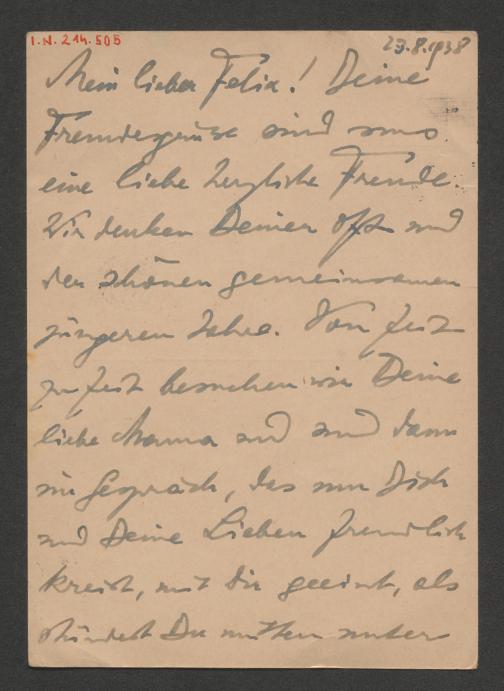 I.N. 214.505
23.8.1938
Mein lieber Felix! Deine
Freundesgrüße sind uns
eine liebe herzliche Freude.
Wir denken Deiner oft und
der schönen gemeinsamen
jüngeren Jahre. Von Zeit
zu Zeit besuchen wir Deine
liebe Mama und sind dann
im Gespräch, das um Dich
und Deine Lieben freundlich
kreist, mit Dir geeint, als
stündest Du mitten unter